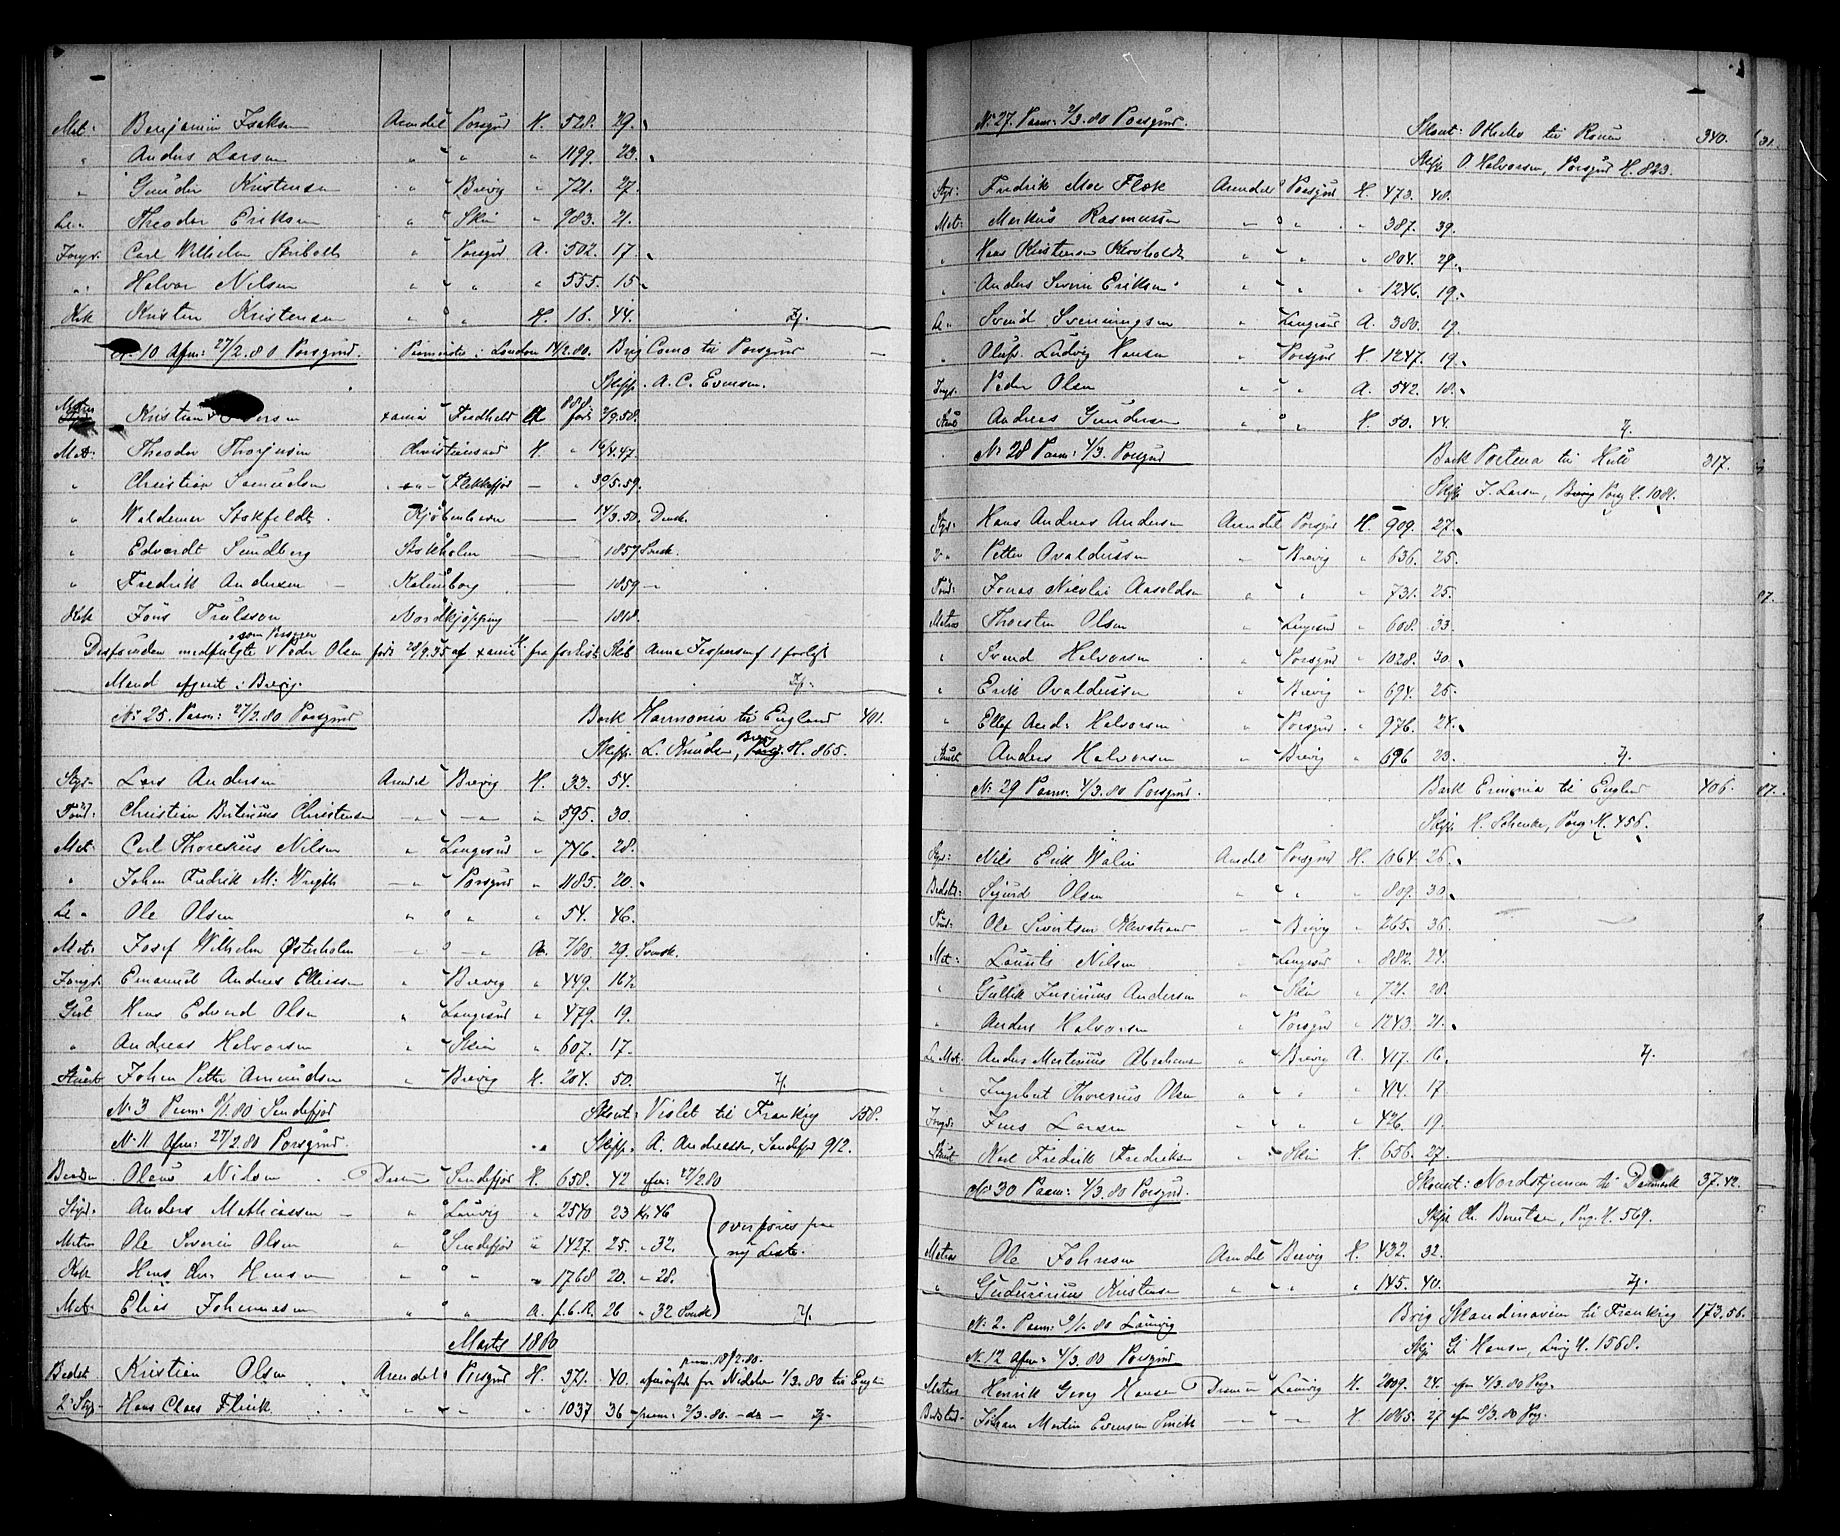 Mat: Benjamin Isaksen Arendal Porsgrd H. 528. 29.
" Anders Larsen " " " 1199. 23.
" Gunder Kristensen " Brevig " 721. 27.
Le " Theodor Eriksen " Skin " 983. 21.
Jongd. Carl Wilhelm " Porsgrd A. 502. 17.
" Halvor Nilsen " " " 555. 15.
Kok Kristen Kristensen " " H. 16. 44.
No 10 Afm: 27/2.80 Porsgrd. i London 14/2.80. Brig Como til Porsgrd
Skipp. A. C. Evensen.
Matros Kristian xania Fredhald A 888 født 2/9.58.
Mat: Theodor Thorjusen Christiansand H. " 16/4.47.
" Christian Samuelsen " Flekkefjord — " 30/5.59.
" Waldemar Stokfeldt. Kjøbenhavn — 14/3.50. Dansk.
" Edvardt Sundberg Stokholm — 1857 Svensk.
" Fredrik Andersen — Kalmborg — 1859 —
Kok Jøns Trulsson Nordkjøpping — 1818.
som Passager
Desforuden medfulgte Peder Olsen født 28/9.35 af xania fra forlist Skib Anna Jespersen 1 forlist
Mand afgaat i Brevig.
No 25. Paam: 27/2.80 Porsgrd Bark Harmonia til England 401.
Skipp. L. Knudsen, Brevig H. 865.
Styr. Lars Andersen Arendal Brevig H. 33. 54.
Tømd. Christian Bertinius Christensen " " " 595. 30.
Mat. Carl Thorenius Nilsen " Langesund " 746. 28.
" Johan Fredrik M: Wrigth " Porsgrd " 1185. 20.
Le " Ole Olsen " " " 54. 46.
Mat. Josef Wilhelm Østerholm " " A. 7/80 29. Svensk.
Jongd. Emanuel Andreas Ellessen " Brevig " 449. 16½
Gut Hans Edvard Olsen " Langesund " 479. 19.
" Andreas Halvorsen " Skien " 607. 17.
Stuert Johan Petter Amundsen " Brevig H. 204. 50.
No 3 Paam: 9/1.80 Sandefjord Skont: Violet til Frankrig 158.
No 11 Afm: 27/2.80 Porsgrund. Skipp. A. Andreassen, Sandefjord 912.
Bedstm. Olaus Nilsen Dram Sandefjor H. 658. 42 afm: 27/2.80
Styd. Anders Mathiassen — " Laurvig " 2540 23 Kr 46
Matros Ole Severin Olsen " Sandefjord " 1427. 25. " 32. overføres paa
ny Liste.
Kok Hans Chr. Hansen " " " 1768 20. " 28.
Mat. Elias Johannesen " " A. f. 6. R. 26 " 32 Svensk
Marts 1880
paam. 18/2.80.
Bedst Kristian Olsen Arendal Porsgrd H. 371. 40. afmønstr. fra Nidelven 1/3.80 til Engl
2 Styr. Hans Claes Flink " " " 1037 36 paam: 2/3.80. — do —
No 27. Paam: 2/3.80 Porsgrd.
Skont: Othello til Rouen 340.
Skip O. Halvorsen, Porsgrd H. 823.
Styr: Fredrik Moe Flak Arendal Porsgrd H. 473. 48.
Mat: Markus Rasmussen " " " 387. 39.
" Hans Kristensen Klovholdt " " " 804. 29.
" Anders Severin Eriksen " " " 1246. 19.
Le " Svend Svenningsen " Langesund A. 380. 19.
" Oluf Ludvig Hansen " Porsgrd H 1247. 19.
Jngd. Peder Olsen " " A. 542. 18.
Stuert Andreas Gundersen " " H. 50. 44.
No 28 Paam: 4/3. Porsgrd Bark Postena til Hull 317.
Skip J. Larsen, Porsg H. 1081.
Styr: Hans Andreas Andersen Arendal Porsgrd H. 909. 27.
2 " Petter Ovaldussen " Brevig " 636. 25.
Tømd: Jonas Nicolai Aasoldsen " " " 731. 25.
Matros Thorsten Olsen " Langesund " 608. 33.
" Svend Halvorsen " Porsgrd " 1028. 30.
" Erik Ovaldussen " Brevig " 694. 25.
" Ellef And: Halvorsen " Porsgrd " 976. 24.
Stuert Anders Halvorsen " Brevig " 696 23.
No 29 Paam: 4/3.80 Porsgrd. Bark Erminia til England 406.
Skip H. Schenke, Porsg H. 456.
Styr: Nils Erik Walin Arendal Porsgrd H. 1064. 26.
Bedstm: Sigurd Olsen " " " 809. 30.
Tømd: Ole Sivertsen Klovstrand " Brevig " 265. 36.
Mat: Laurits Nilsen " Langesund " 882. 24.
" Gullik Jusinius Andersen " Skin " 721. 28.
" Anders Halvorsen " Porsgrd " 1243. 21.
Le Mat. Anders Martinius Abrahamsen " Brevig A. 417. 16.
" Ingebret Thorenius Olsen " " " 414. 17
Jngd: Jens Larsen " " " 426. 19.
Stuert Karl Fredrik Fredriksen " Skin H. 656. 27.
No 30 Paam: 4/3.80 Porsgrd. Skonnt: Nordstjernen til Danmark 37.42.
Skip Chr. Berntsen, Porsg. H. 569.
Matros Ole Johnsen Arendal Brevig H. 432. 32.
" Gudmunus Kristensen " " " 145. 40.
No 2. Paam: 9/1.80 Laurvig Brig Skandinavien til Frankrig 173.56.
No 12 Afm: 4/3.80 Porsgrd Skip G. Hansen, Lvig H. 1568.
Matros Henrik Georg Hansen Drammen Laurvig H. 2009. 24. afm 4/3.80 Porsg.
Bedstmd. Johan Martin Evensen Smith " " H. 1065. 27 afm 9/3.80 Porsg.